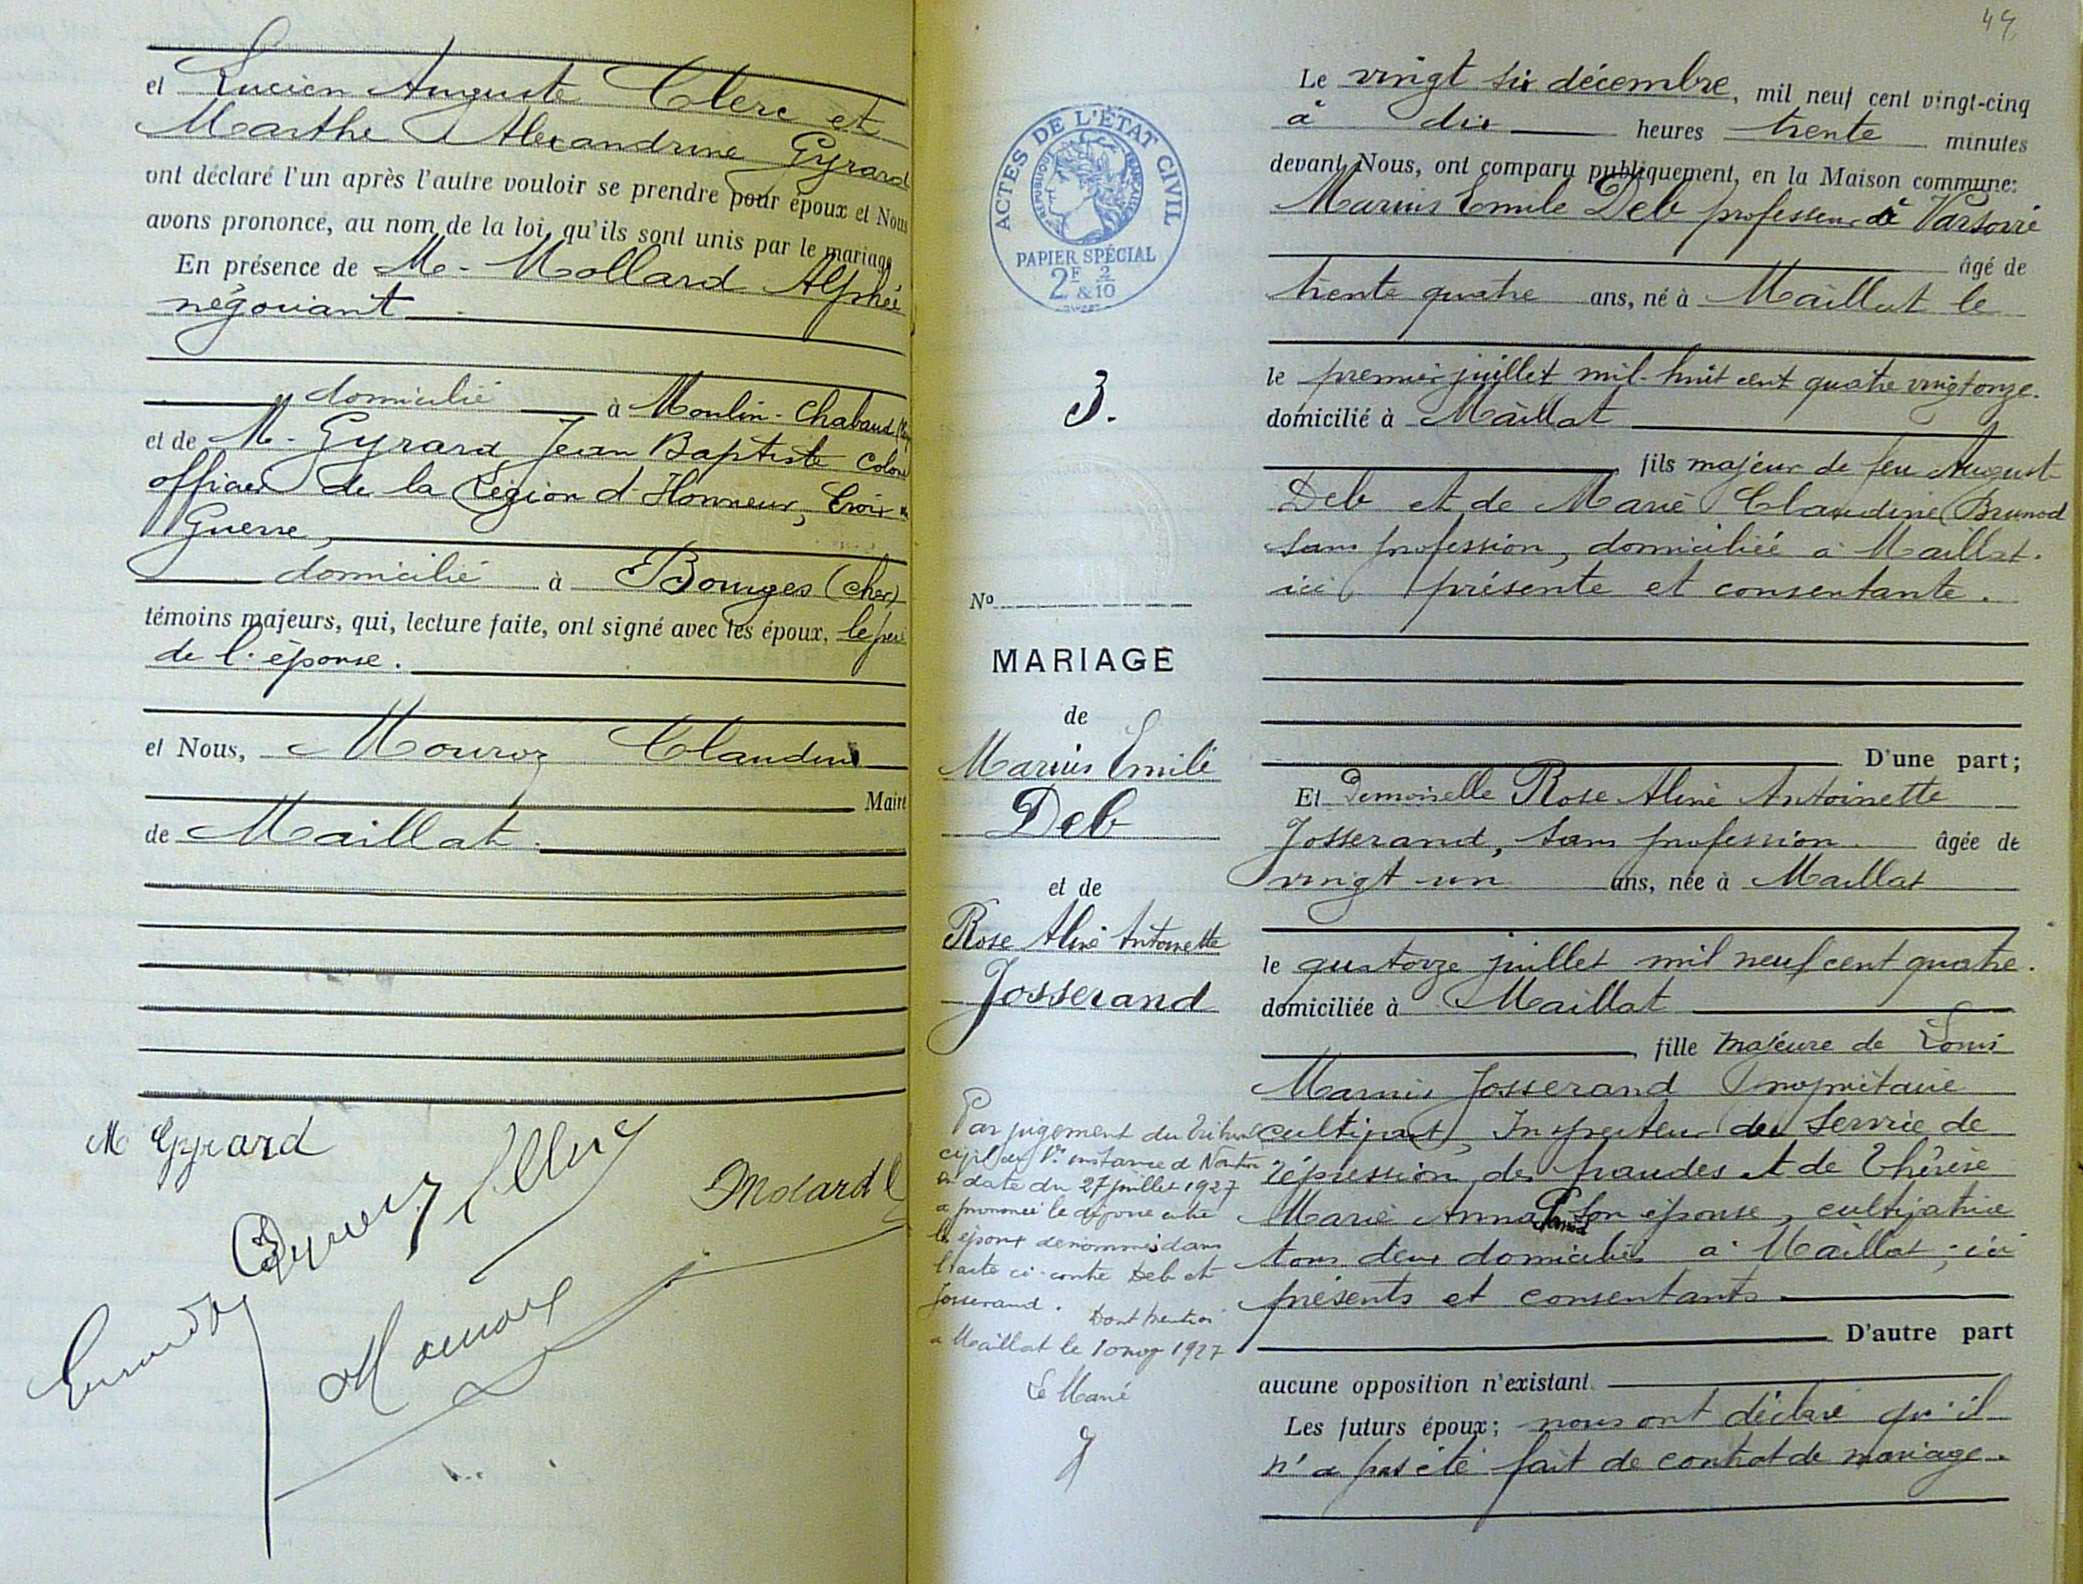 et Lucien Auguste Clerc et
Marthe Alexandrine Gyrard
ont déclaré l'un après l'autre vouloir se prendre pour époux et Nous
avons prononcé, au nom de la loi, qu'ils sont unis par le mariage
En présence de M. Mollard Alphée
négociant
domicilié à Moulin-Chabaud
et de M. Gyrard Jean Baptiste colonel
officier de la Légion d'Honneur, Croix de
Guerre,
domicilié à Bourges (Cher)
témoins majeurs, qui, lecture faite, ont signé avec les époux, le père
de l'épouse.
et Nous, Mouroz Claudius
Maire
de Maillat.
M Gyrard
Mouroz
49
ACTES DE L'ÉTAT CIVIL
RÉPUBLIQUE FRANÇAISE
PAPIER SPÉCIAL
2F & 2/10
3.
No
MARIAGE
de
Marius Emile
Deb
et de
Rose Aline Antoinette
Josserand
Par jugement du Tribunal
civil de 1re instance de Nantua
en date du 27 juillet 1927
a prononcé le divorce entre
les époux dénommés dans
l'acte ci-contre Deb et
Josserand. Dont mention
a Maillat le 10 nov 1927
Le Maire
Le vingt six décembre, mil neuf cent vingt-cinq
à dix heures trente minutes
devant Nous, ont comparu publiquement, en la Maison commune:
Marius Emile Deb professeur à Varsovie
âgé de
trente quatre ans, né à Maillat le
le premier juillet mil-huit cent quatre vingt onze.
domicilié à Maillat
fils majeur de feu August
Deb et de Marie Claudine Brunod
sans profession, domiciliée à Maillat.
ici présente et consentante.
D'une part;
Et Demoiselle Rose Aline Antoinette
Josserand, sans profession. âgée de
vingt un ans, née à Maillat
le quatorze juillet mil neuf cent quatre.
domiciliée à Maillat
fille majeure de Louis
Marius Josserand propriétaire
cultivant, Inspecteur du Service de
répression des fraudes et de Thérèse
Marie Anna son épouse, cultivatrice
tous deux domiciliés à Maillat, ici
présents et consentants
D'autre part
aucune opposition n'existant
Les futurs époux; nous ont déclaré qu'il
n'a pas été fait de contrat de mariage.